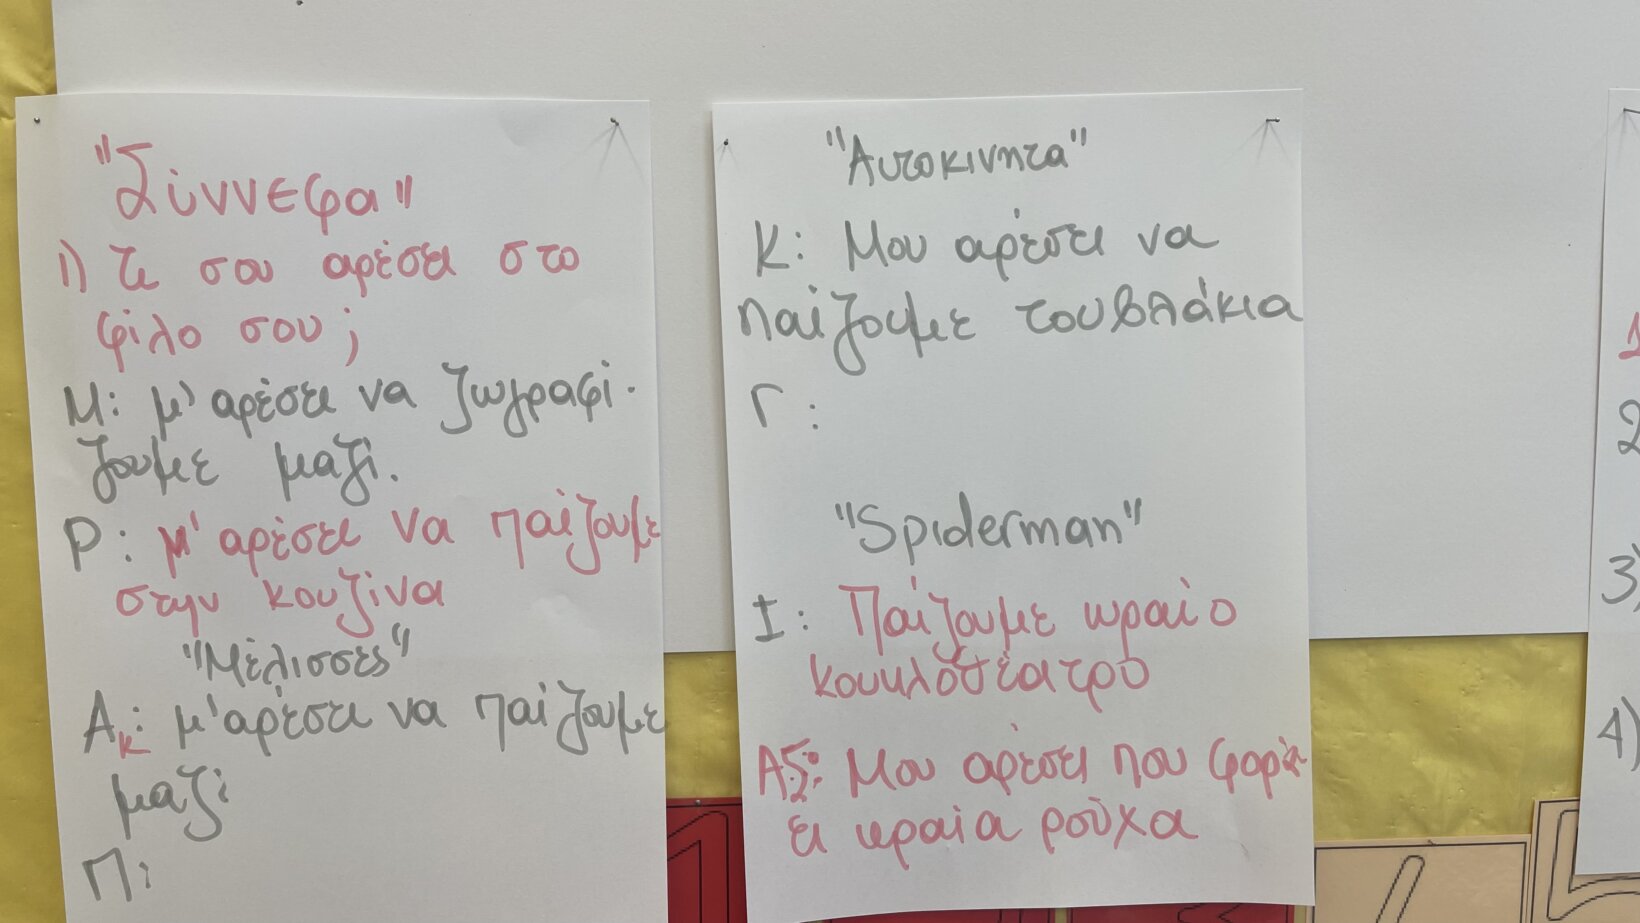 "Σύννεφα"
1) Τι σου αρέσει στο
φίλο σου;
Μ: μ' αρέσει να ζωγραφί-
ζουμε μαζί.
Ρ: μ' αρέσει να παίζουμε
στην κουζίνα
"Μέλισσες"
Ακ: μ' αρέσει να παίζουμε
μαζί
Π:
"Αυτοκινητα"
Κ: Μου αρέσει να
παίζουμε τουβλάκια
Γ:
"Spiderman"
Ι: Παίζουμε ωραίο
κουκλοθέατρο
ΑΣ: Μου αρέσει που φορά-
ει ωραία ρούχα
1
2
3)
4)